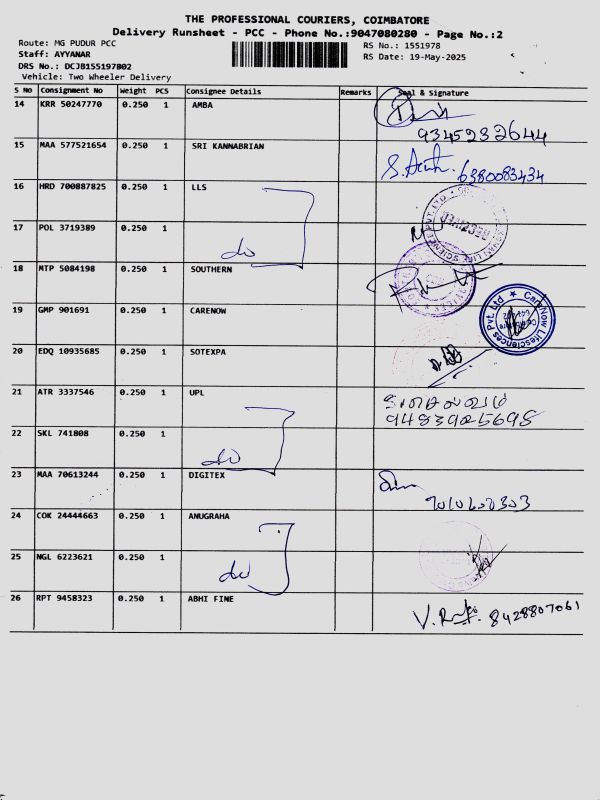 THE PROFESSIONAL COURIERS, COIMBATORE
Delivery Runsheet - PCC - Phone No.:9047080280 - Page No.:2
Route: MG PUDUR PCC
RS No.: 1551978
Staff: AYYANAR
RS Date: 19-May-2025
DRS No.: DCJB155197802
Vehicle: Two Wheeler Delivery
S No Consignment No Weight PCS Consignee Details Remarks Seal & Signature
14 KRR 50247770 0.250 1 AMBA
9345232644
15 MAA 577521654 0.250 1 SRI KANNABRIAN
6380083434
16 HRD 700887825 0.250 1 LLS
RECEIVED
17 POL 3719389 0.250 1 do
18 MTP 5084198 0.250 1 SOUTHERN
19 GMP 901691 0.250 1 CARENOW
CareNow Lifesciences Pvt. Ltd
20 EDQ 10935685 0.250 1 SOTEXPA
21 ATR 3337546 0.250 1 UPL
9483925695
22 SKL 741808 0.250 1 do
23 MAA 70613244 0.250 1 DIGITEX
24 COK 24444663 0.250 1 ANUGRAHA
25 NGL 6223621 0.250 1 do
26 RPT 9458323 0.250 1 ABHI FINE
8428807061